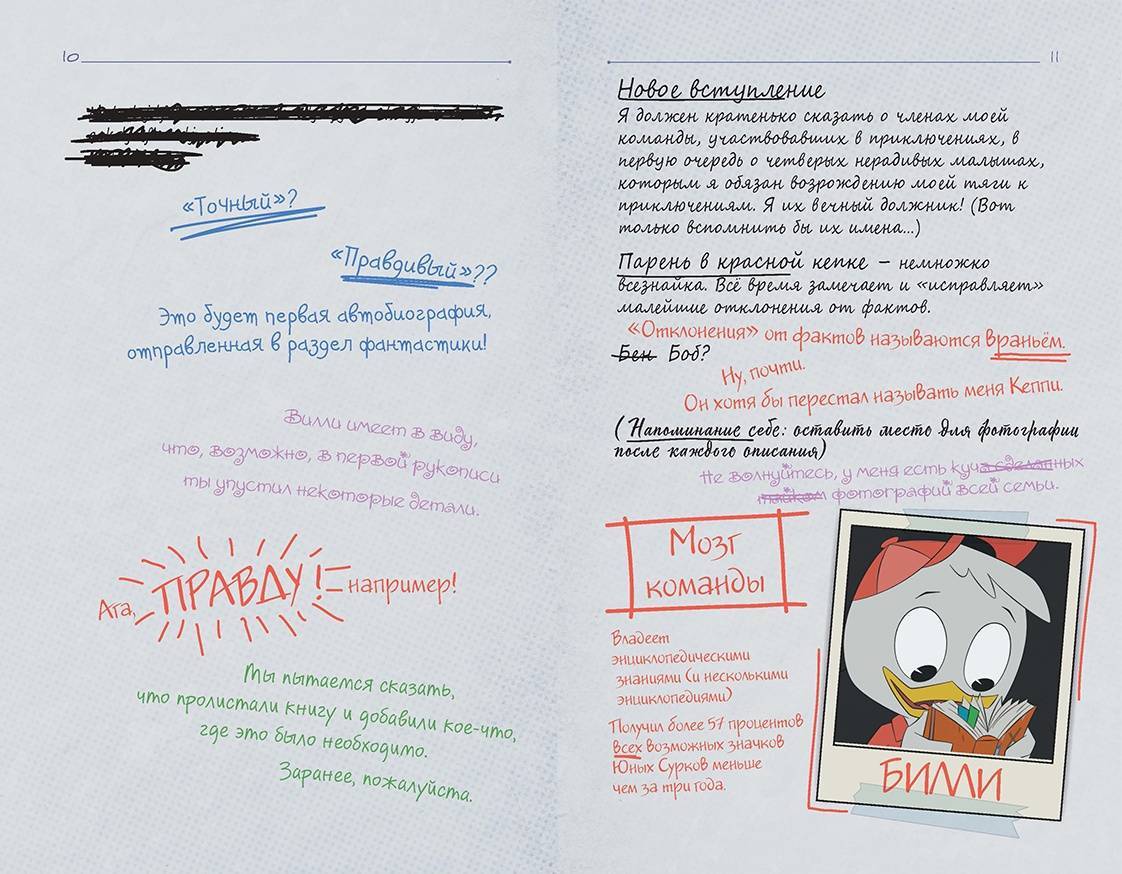 10
«Точный»?
«Правдивый»??
Это будет первая автобиография,
отправленная в раздел фантастики!
Вилли имеет в виду,
что, возможно, в первой рукописи
ты упустил некоторые детали.
Ага, ПРАВДУ! например!
Ты пытаемся сказать,
что пролистали книгу и добавили кое-что,
где это было необходимо.
Заранее, пожалуйста.
11
Новое вступление
Я должен кратенько сказать о членах моей
команды, участвовавших в приключениях, в
первую очередь о четверых нерадивых малышах,
которым я обязан возрождению моей тяги к
приключениям. Я их вечный должник! (Вот
только вспомнить бы их имена...)
Парень в красной кепке – немножко
всезнайка. Всё время замечает и «исправляет»
малейшие отклонения от фактов.
«Отклонения» от фактов называются враньём.
Бен Боб?
Ну, почти.
Он хотя бы перестал называть меня Кеппи.
(Напоминание себе: оставить место для фотографии
после каждого описания)
Не волнуйтесь, у меня есть куча сделанных
тайком фотографий всей семьи.
Мозг
команды
Владеет
энциклопедическими
знаниями (и несколькими
энциклопедиями)
Получил более 57 процентов
всех возможных значков
Юных Сурков меньше
чем за три года.
БИЛЛИ